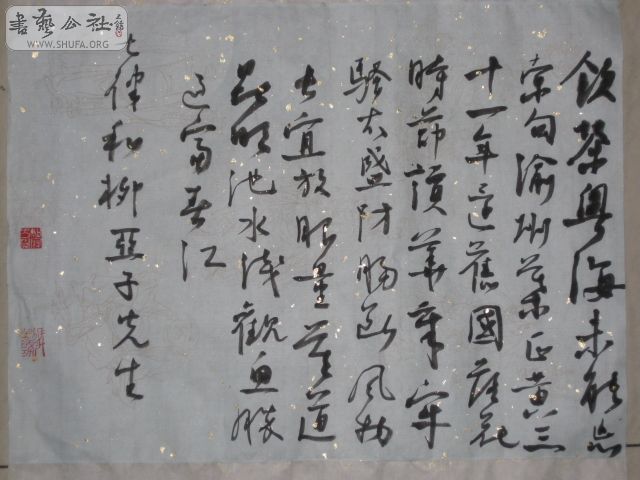 書藝公社
WWW.SHUFA.ORG
飲茶粵海未能忘
索句渝州葉正黄三
十一年還舊國落花
時節讀華章牢
騷太盛防腸斷風物
長宜放眼量莫道
昆明池水淺觀魚勝
過富春江
七律和柳亞子先生